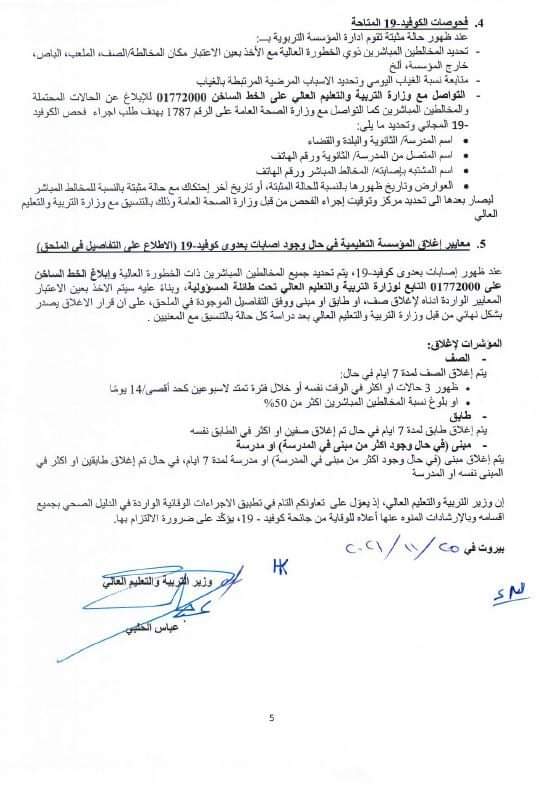 4. فحوصات الكوفيد-19 المتاحة
عند ظهور حالة مثبتة تقوم ادارة المؤسسة التربوية بـ:
- تحديد المخالطين المباشرين ذوي الخطورة العالية مع الأخذ بعين الاعتبار مكان المخالطة/الصف، الملعب، الباص، خارج المؤسسة، ألخ
- متابعة نسبة الغياب اليومي وتحديد الاسباب المرضية المرتبطة بالغياب
- التواصل مع وزارة التربية والتعليم العالي على الخط الساخن 01772000 للإبلاغ عن الحالات المحتملة
والمخالطين المباشرين كما التواصل مع وزارة الصحة العامة على الرقم 1787 بهدف طلب اجراء فحص الكوفيد
-19 المجاني وتحديد ما يلي:
• اسم المدرسة/ الثانوية والبلدة والقضاء
• اسم المتصل من المدرسة/ الثانوية ورقم الهاتف
• اسم المشتبه بإصابته/ المخالط المباشر ورقم الهاتف
• العوارض وتاريخ ظهورها بالنسبة للحالة المثبتة، أو تاريخ آخر إحتكاك مع حالة مثبتة بالنسبة للمخالط المباشر
ليصار بعدها الى تحديد مركز وتوقيت إجراء الفحص من قبل وزارة الصحة العامة وذلك بالتنسيق مع وزارة التربية والتعليم
العالي
5. معايير إغلاق المؤسسة التعليمية في حال وجود اصابات بعدوى كوفيد-19 (الاطلاع على التفاصيل في الملحق)
عند ظهور إصابات بعدوى كوفيد-19، يتم تحديد جميع المخالطين المباشرين ذات الخطورة العالية وإبلاغ الخط الساخن
على 01772000 التابع لوزارة التربية والتعليم العالي تحت طائلة المسؤولية، وبناءً عليه سيتم الاخذ بعين الاعتبار
المعايير الواردة ادناه لإغلاق صف، او طابق او مبنى ووفق التفاصيل الموجودة في الملحق، على ان قرار الاغلاق يصدر
بشكل نهائي من قبل وزارة التربية والتعليم العالي بعد دراسة كل حالة بالتنسيق مع المعنيين .
المؤشرات لإغلاق:
- الصف
يتم إغلاق الصف لمدة 7 ايام في حال:
• ظهور 3 حالات او اكثر في الوقت نفسه أو خلال فترة تمتد لاسبوعين كحد أقصى/14 يومًا
• او بلوغ نسبة المخالطين المباشرين اكثر من 50%
- طابق
يتم إغلاق طابق لمدة 7 ايام في حال تم إغلاق صفين او اكثر في الطابق نفسه
- مبنى (في حال وجود اكثر من مبنى في المدرسة) او مدرسة
يتم إغلاق مبنى (في حال وجود اكثر من مبنى في المدرسة) او مدرسة لمدة 7 ايام، في حال تم إغلاق طابقين او اكثر في
المبنى نفسه او المدرسة
إن وزير التربية والتعليم العالي، إذ يعوّل على تعاونكم التام في تطبيق الاجراءات الوقائية الواردة في الدليل الصحي بجميع
اقسامه وبالإرشادات المنوه عنها أعلاه للوقاية من جائحة كوفيد - 19، يؤكّد على ضرورة الالتزام بها.
بيروت في ٢٥/١١/٢٠٢١
HK
وزير التربية والتعليم العالي
عباس الحلبي
5